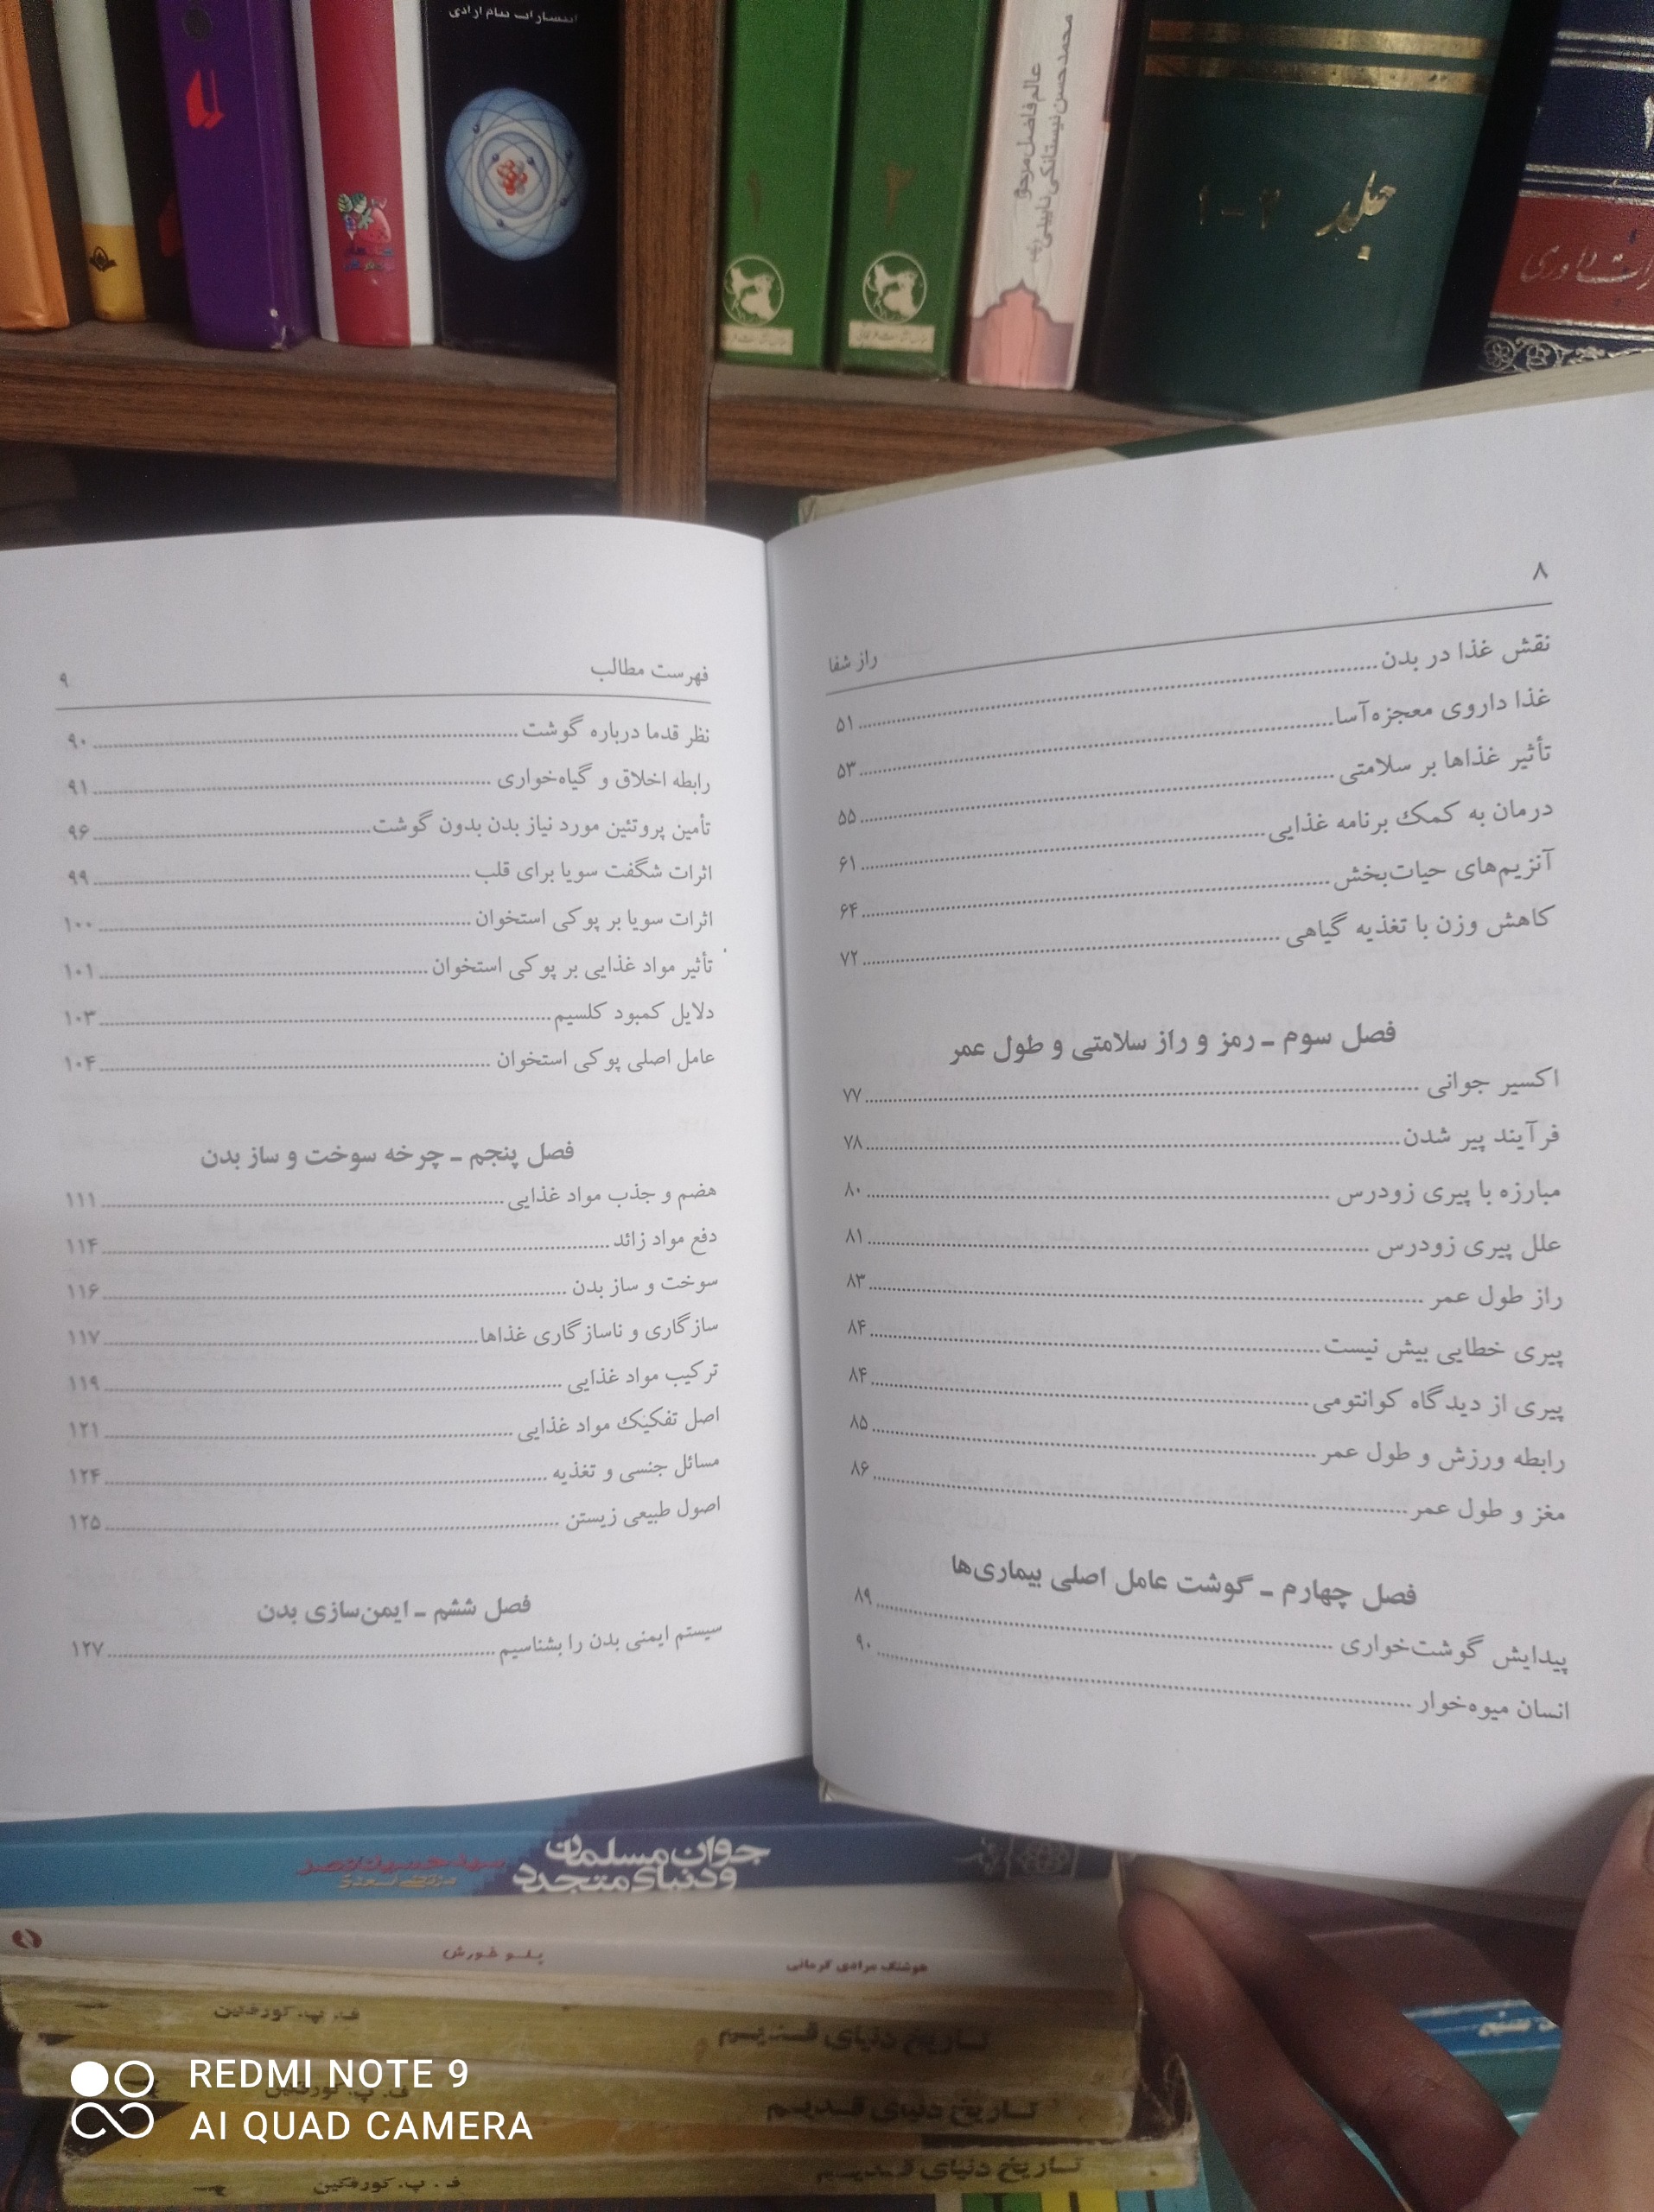 انتشارات پیام آزادی
۱
۲
عالم فاضل مرجو
محمدحسن نیستانکی نایینی
جلد ۲-۱
۸
راز شفا
نقش غذا در بدن ۵۱
غذا داروی معجزه‌آسا ۵۳
تأثیر غذاها بر سلامتی ۵۵
درمان به کمک برنامه غذایی ۶۱
آنزیم‌های حیات‌بخش ۶۴
کاهش وزن با تغذیه گیاهی ۷۲
فصل سوم ـ رمز و راز سلامتی و طول عمر
اکسیر جوانی ۷۷
فرآیند پیر شدن ۷۸
مبارزه با پیری زودرس ۸۰
علل پیری زودرس ۸۱
راز طول عمر ۸۳
پیری خطایی بیش نیست ۸۴
پیری از دیدگاه کوانتومی ۸۴
رابطه ورزش و طول عمر ۸۵
مغز و طول عمر ۸۶
فصل چهارم ـ گوشت عامل اصلی بیماری‌ها
پیدایش گوشت‌خواری ۸۹
انسان میوه‌خوار ۹۰
فهرست مطالب ۹
نظر قدما درباره گوشت ۹۰
رابطه اخلاق و گیاه‌خواری ۹۱
تأمین پروتئین مورد نیاز بدن بدون گوشت ۹۶
اثرات شگفت سویا برای قلب ۹۹
اثرات سویا بر پوکی استخوان ۱۰۰
تأثیر مواد غذایی بر پوکی استخوان ۱۰۱
دلایل کمبود کلسیم ۱۰۳
عامل اصلی پوکی استخوان ۱۰۴
فصل پنجم ـ چرخه سوخت و ساز بدن
هضم و جذب مواد غذایی ۱۱۱
دفع مواد زائد ۱۱۴
سوخت و ساز بدن ۱۱۶
سازگاری و ناسازگاری غذاها ۱۱۷
ترکیب مواد غذایی ۱۱۹
اصل تفکیک مواد غذایی ۱۲۱
مسائل جنسی و تغذیه ۱۲۴
اصول طبیعی زیستن ۱۲۵
فصل ششم ـ ایمن‌سازی بدن
سیستم ایمنی بدن را بشناسیم ۱۲۷
جوان مسلمان
و دنیای متجدد
سید حسین نصر
مرتضی اسعدی
هوشنگ مرادی کرمانی
پلو خورش
ف. پ. کوروفکین
ف. پ. کوروفکین
تاریخ دنیای قدیم
ف. پ. کوروفکین
REDMI NOTE 9
AI QUAD CAMERA